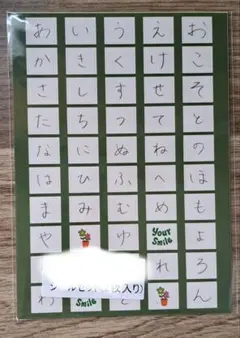 あいうえお
かきくけこ
さしすせそ
たちつてと
なにぬねの
はひふへほ
まみむめも
や ゆ Your Smile よ
れろ
Smile ん